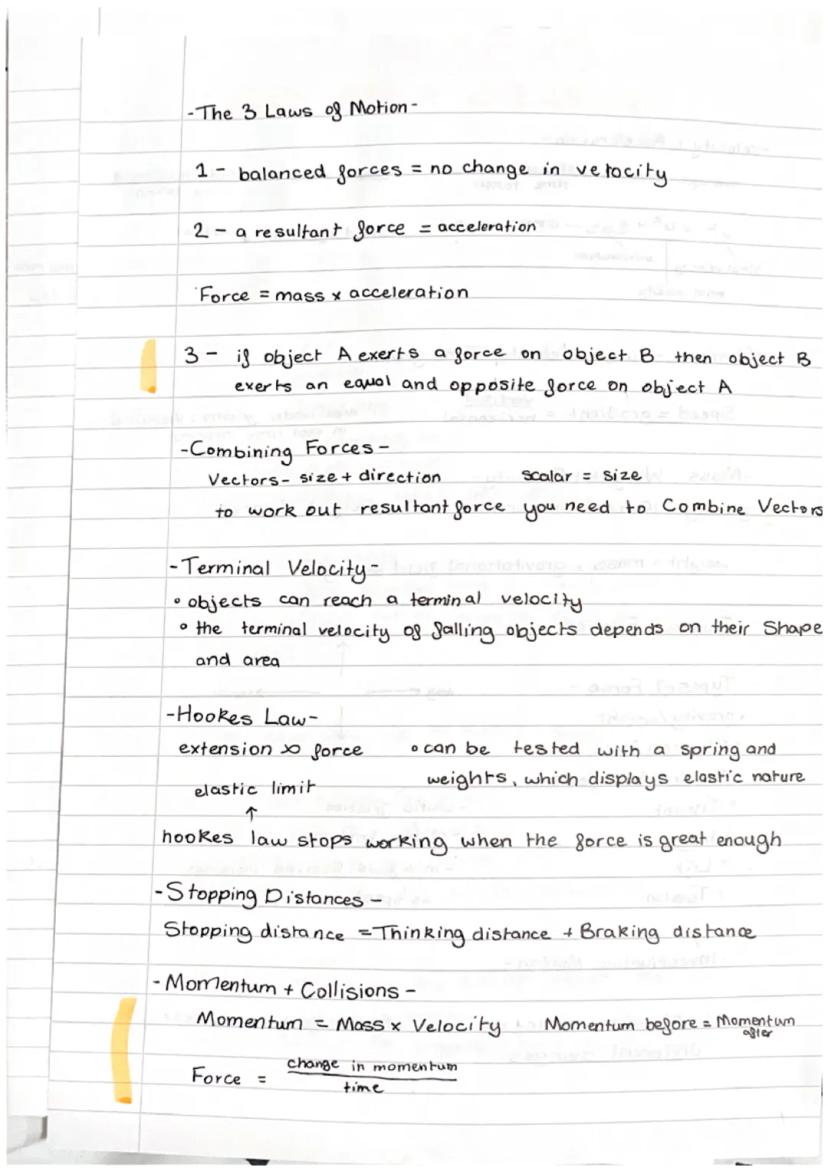 -The 3 Laws of Motion-
1 - balanced forces = no change in velocity
2 - a resultant force = acceleration
Force = mass x acceleration
3 - if object A exerts a force on object B then object B
exerts an equal and opposite force on object A
-Combining Forces-
Vectors- size + direction scalar = size
to work out resultant force you need to Combine Vectors
-Terminal Velocity-
• objects can reach a terminal velocity
• the terminal velocity of falling objects depends on their Shape
and area
-Hookes Law-
extension ∝ force • can be tested with a spring and
weights, which displays elastic nature
elastic limit
↑
hookes law stops working when the force is great enough
-Stopping Distances-
Stopping distance = Thinking distance + Braking distance
-Momentum + Collisions-
Momentum = Mass x Velocity Momentum before = Momentum
after
Force = change in momentum
time